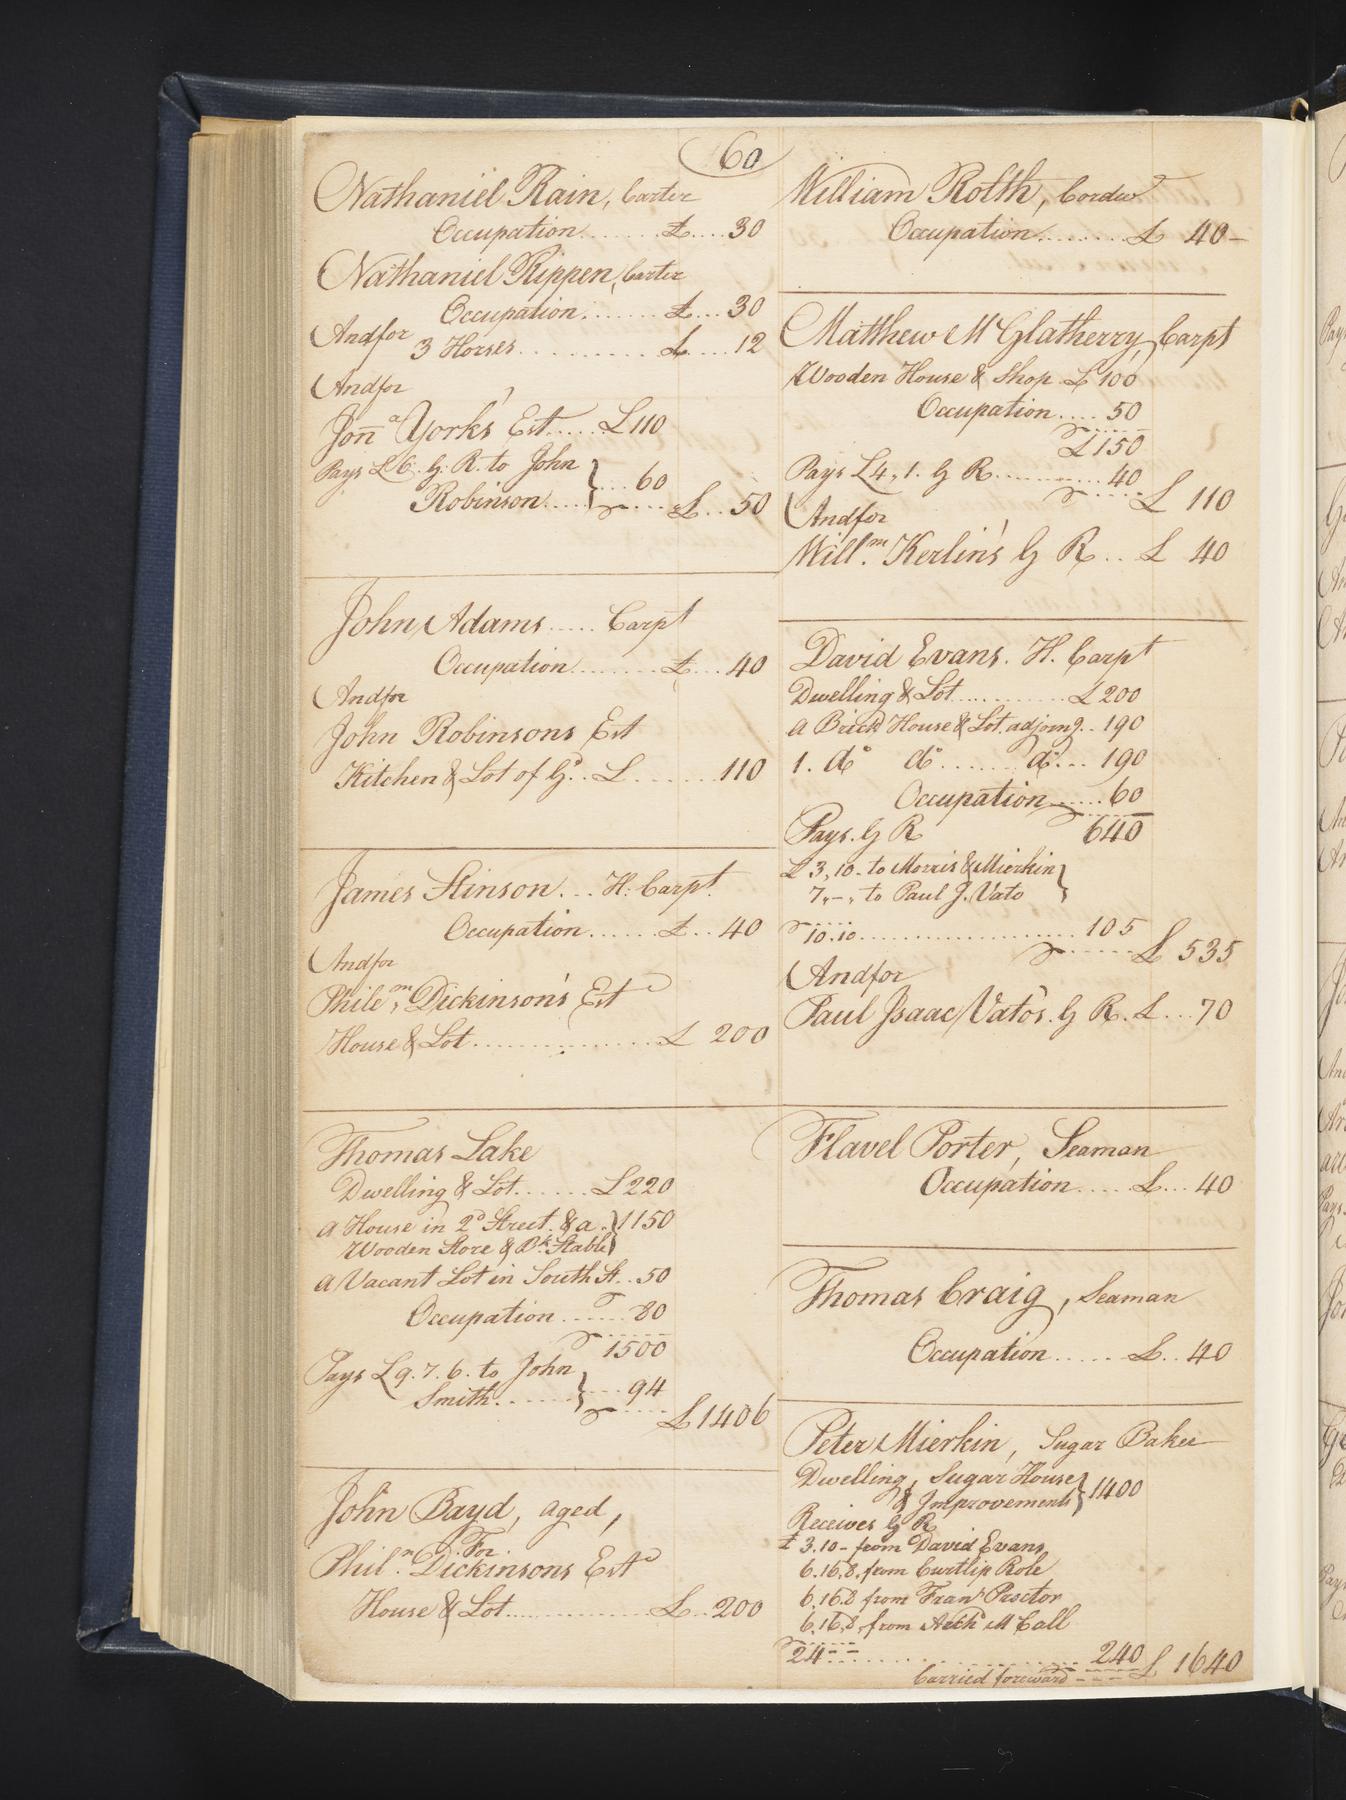 60
Nathaniel Rain, Carter
Occupation ....... £ .... 30
Nathaniel Rippen, Carter
Occupation ....... £ ... 30
Andfor
3 Horses ........... £ .... 12
Andfor
Jonᵃ York's Est ..... £110
Pays £6. G. R. to John
Robinson .... } ... 60
£ .. 50
John Adams ..... Carpt
Occupation ........ £ ... 40
Andfor
John Robinsons Est
Kitchen & Lot of Gᵈ .. £ ....... 110
James Stinson ... H. Carpt.
Occupation ...... £ .. 40
Andfor
Phileᵐ, Dickinson's Est
House & Lot ................. £ 200
Thomas Lake
Dwelling & Lot ...... £220
a House in 2ᵈ Street. & a . } 1150
Wooden Store & Bᵏ Stable
a Vacant Lot in South St .. 50
Occupation ...... 80
1500
Pays £9. 7. 6. to John
Smith ....... } ... 94
£1406
John Bayd, aged,
For
Philⁿ. Dickinsons Est
House & Lot ............. £ .. 200
William Rolth, Cordwʳ
Occupation ......... £ 40 –
Matthew McGlatherry, Carpt
Wooden House & Shop £100
Occupation .... 50
£150
Pays £4, 1. G R .......... 40
£ 110
Andfor
Will.ᵐ Kerlin's G R .. £ 40
David Evans. H. Carpt
Dwelling & Lot ........... £200
a Brick House & Lot adjoing .. 190
1. dᵒ dᵒ ....... dᵒ ... 190
Occupation ..... 60
640
Pays. G R
£3, 10 - to Morris & Mierkin
7, - , to Paul J. Vato }
10.10 ..................... 105
£ 535
Andfor
Paul Isaac Vato's. G R. £ ... 70
Flavel Porter, Seaman
Occupation .... £ ... 40
Thomas Craig, Seaman
Occupation ..... £ .. 40
Peter Mierkin, Sugar Baker
Dwelling, Sugar House
& Improvements } 1400
Receives G R
£ 3.10 - from David Evans,
6.16.8, from Curtlip Role
6.16.8 from Franˢ Proctor
6.16.8, from Archᵈ McCall
24 - - .............. 240 £ 1640
Carried forward - - -